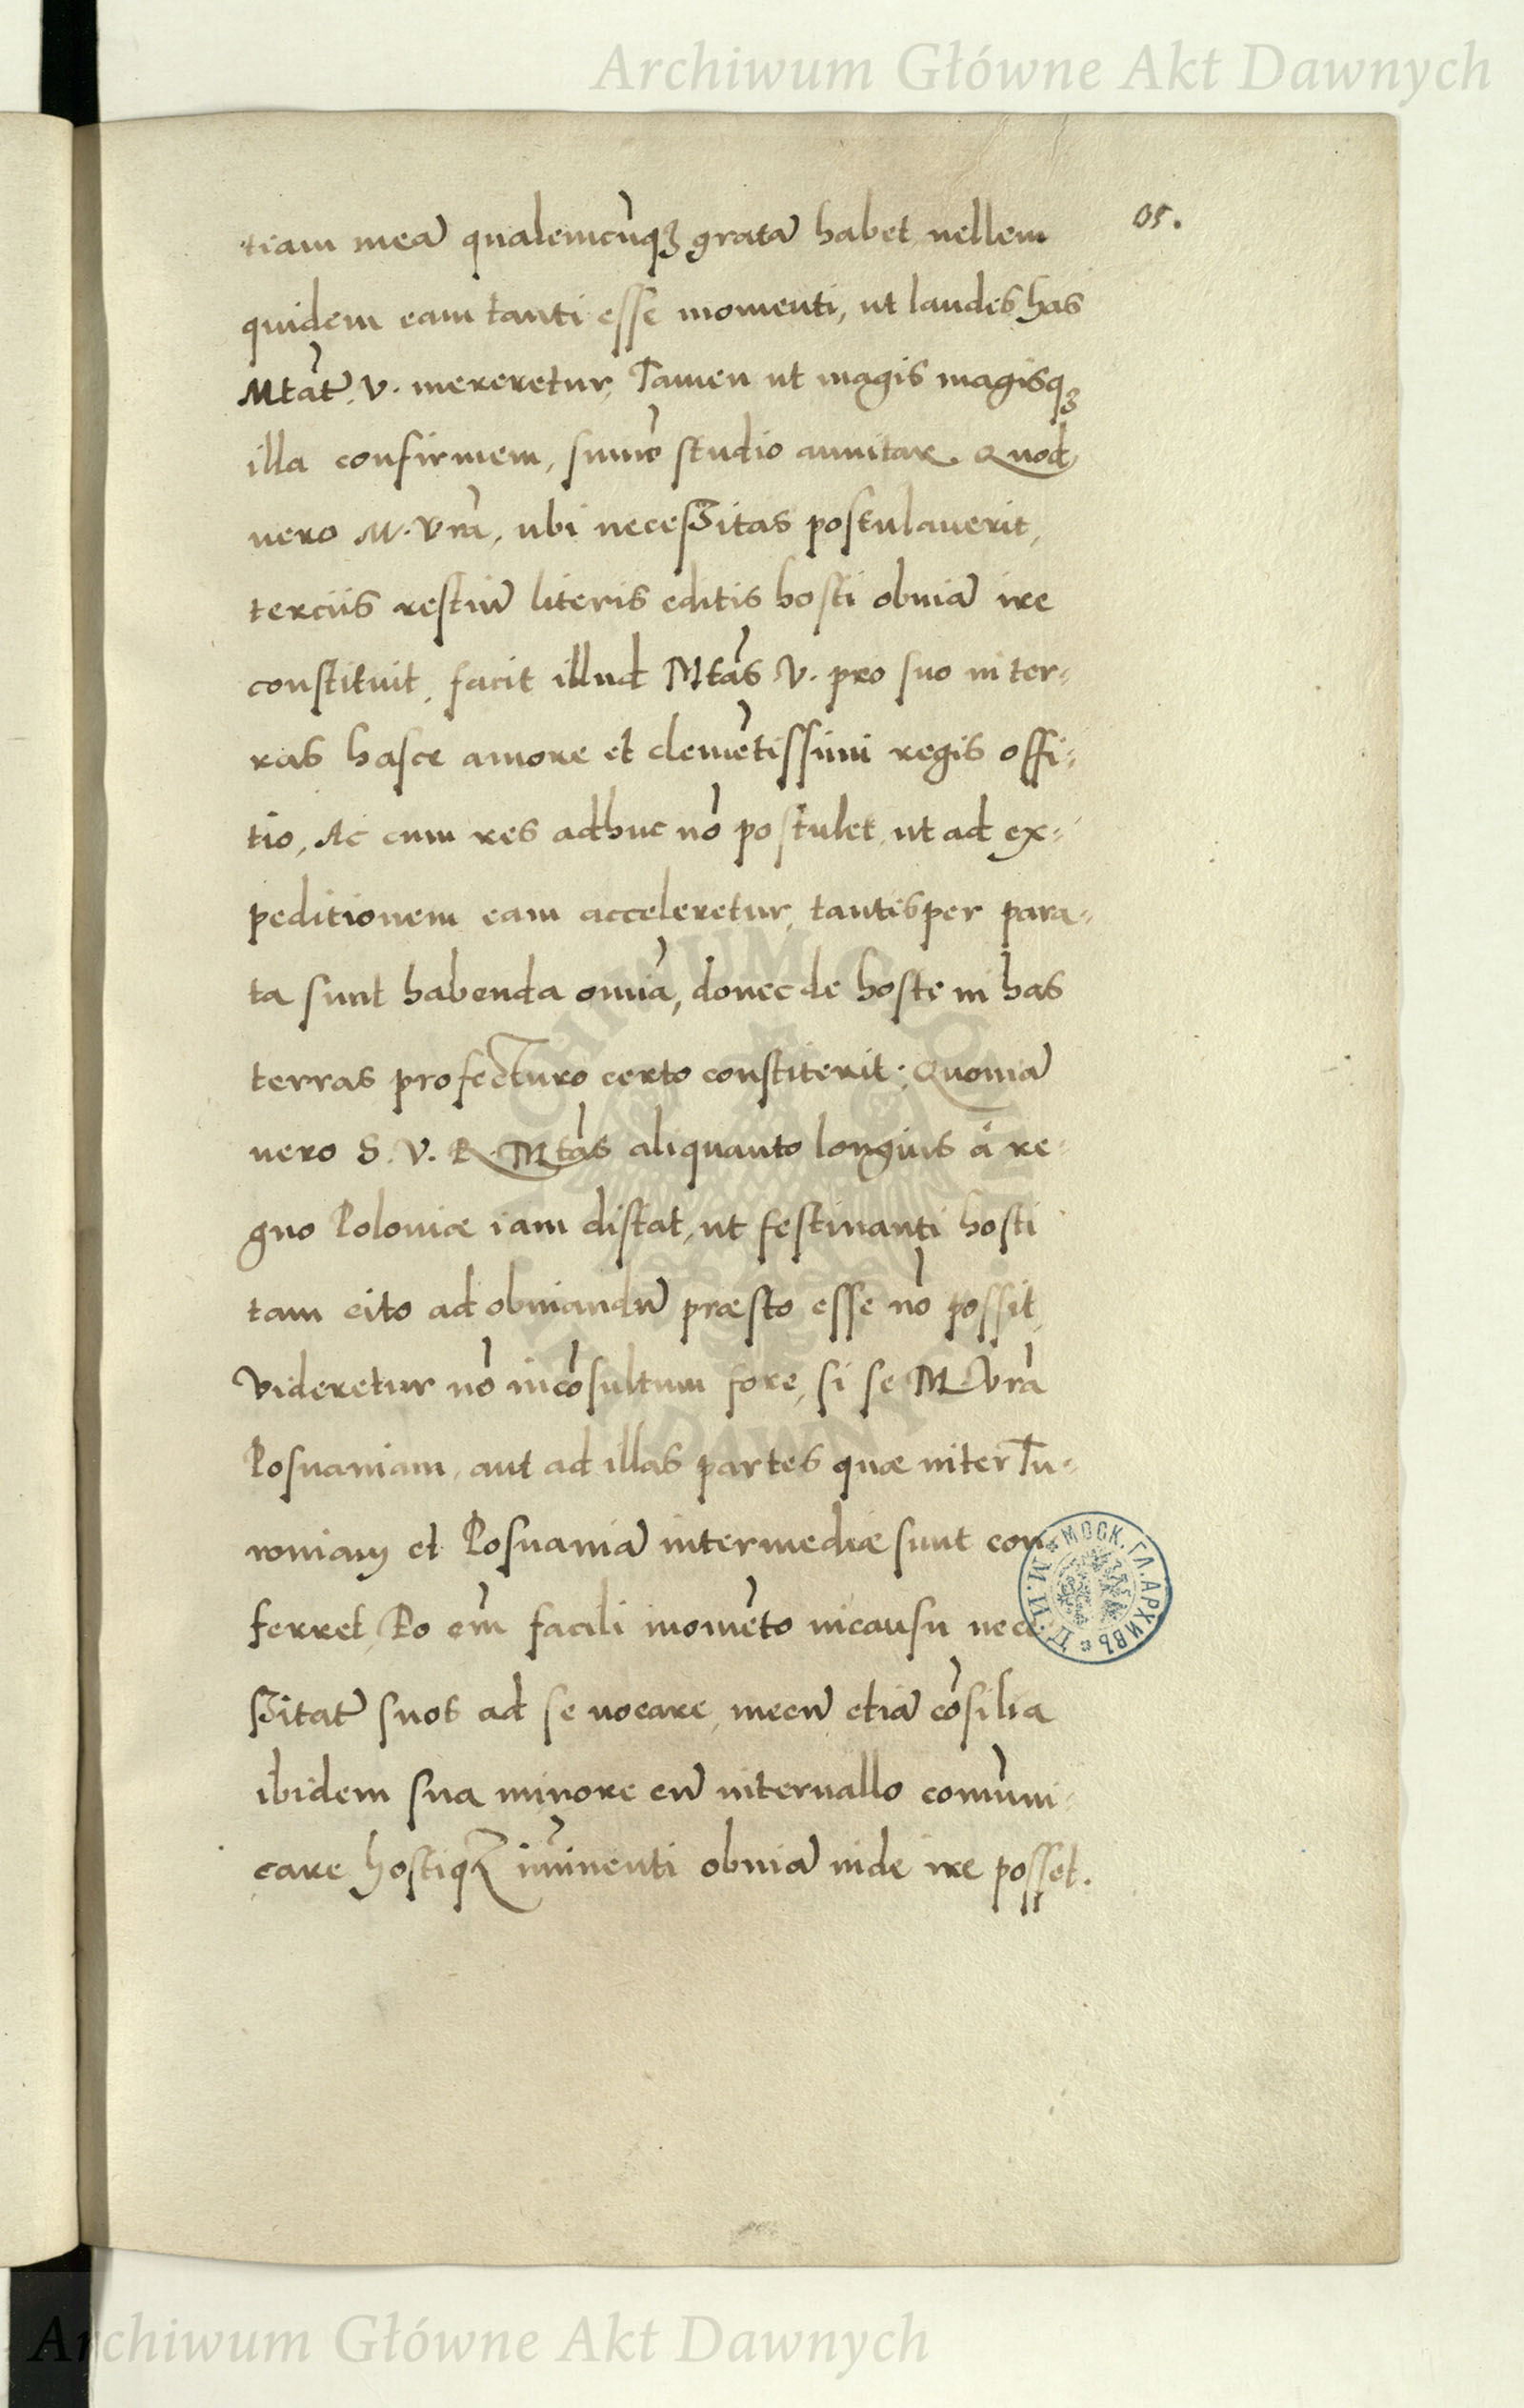 Archiwum Główne Akt Dawnych
05.
tiam meā qualemcūqꝫ gratā habet, uellem
quidem eam tanti esse momenti, ut laudes has
Mtāt̃. V. mereretur, Tamen ut magis magisqꝫ
illa confirmem, sum̄o studio annitar. Quod
uero M. Vrā, ubi necessitas postulauerit,
terciis restiū literis editis hosti obuiā ire
constituit, facit illud Mtās V. pro suo in ter-
ras hasce amore et clemētissimi regis offi-
tio, Ac cum res adhuc nō postulet, ut ad ex-
peditionem eam acceleretur, tantisper para-
ta sunt habenda om̄ia, donec de hoste in has
terras profecturo certo constiterit: Quoniā
uero S. V. R. Mtās aliquanto longius à re-
gno Poloniæ iam distat, ut festinanti hosti
tam cito ad obuiandū præsto esse nō possit,
Videretur nō incōsultum fore, si se M. Vrā
Posnaniam, aut ad illas partes quæ inter Tu-
roniam et Posnaniā intermediæ sunt con
ferret, Eo em̄ facili momēto in causu nece
ssitat̃ suos ad se uocare, mecū etiā cōsilia
ibidem sua minore cū interuallo com̄uni-
care hostiqꝫ im̄inenti obuiā inde ire posset.
МОСК. ГЛ. АРХИВЪ М. И. Д.
ARCHIWUM GŁÓWNE AKT DAWNYCH
Archiwum Główne Akt Dawnych